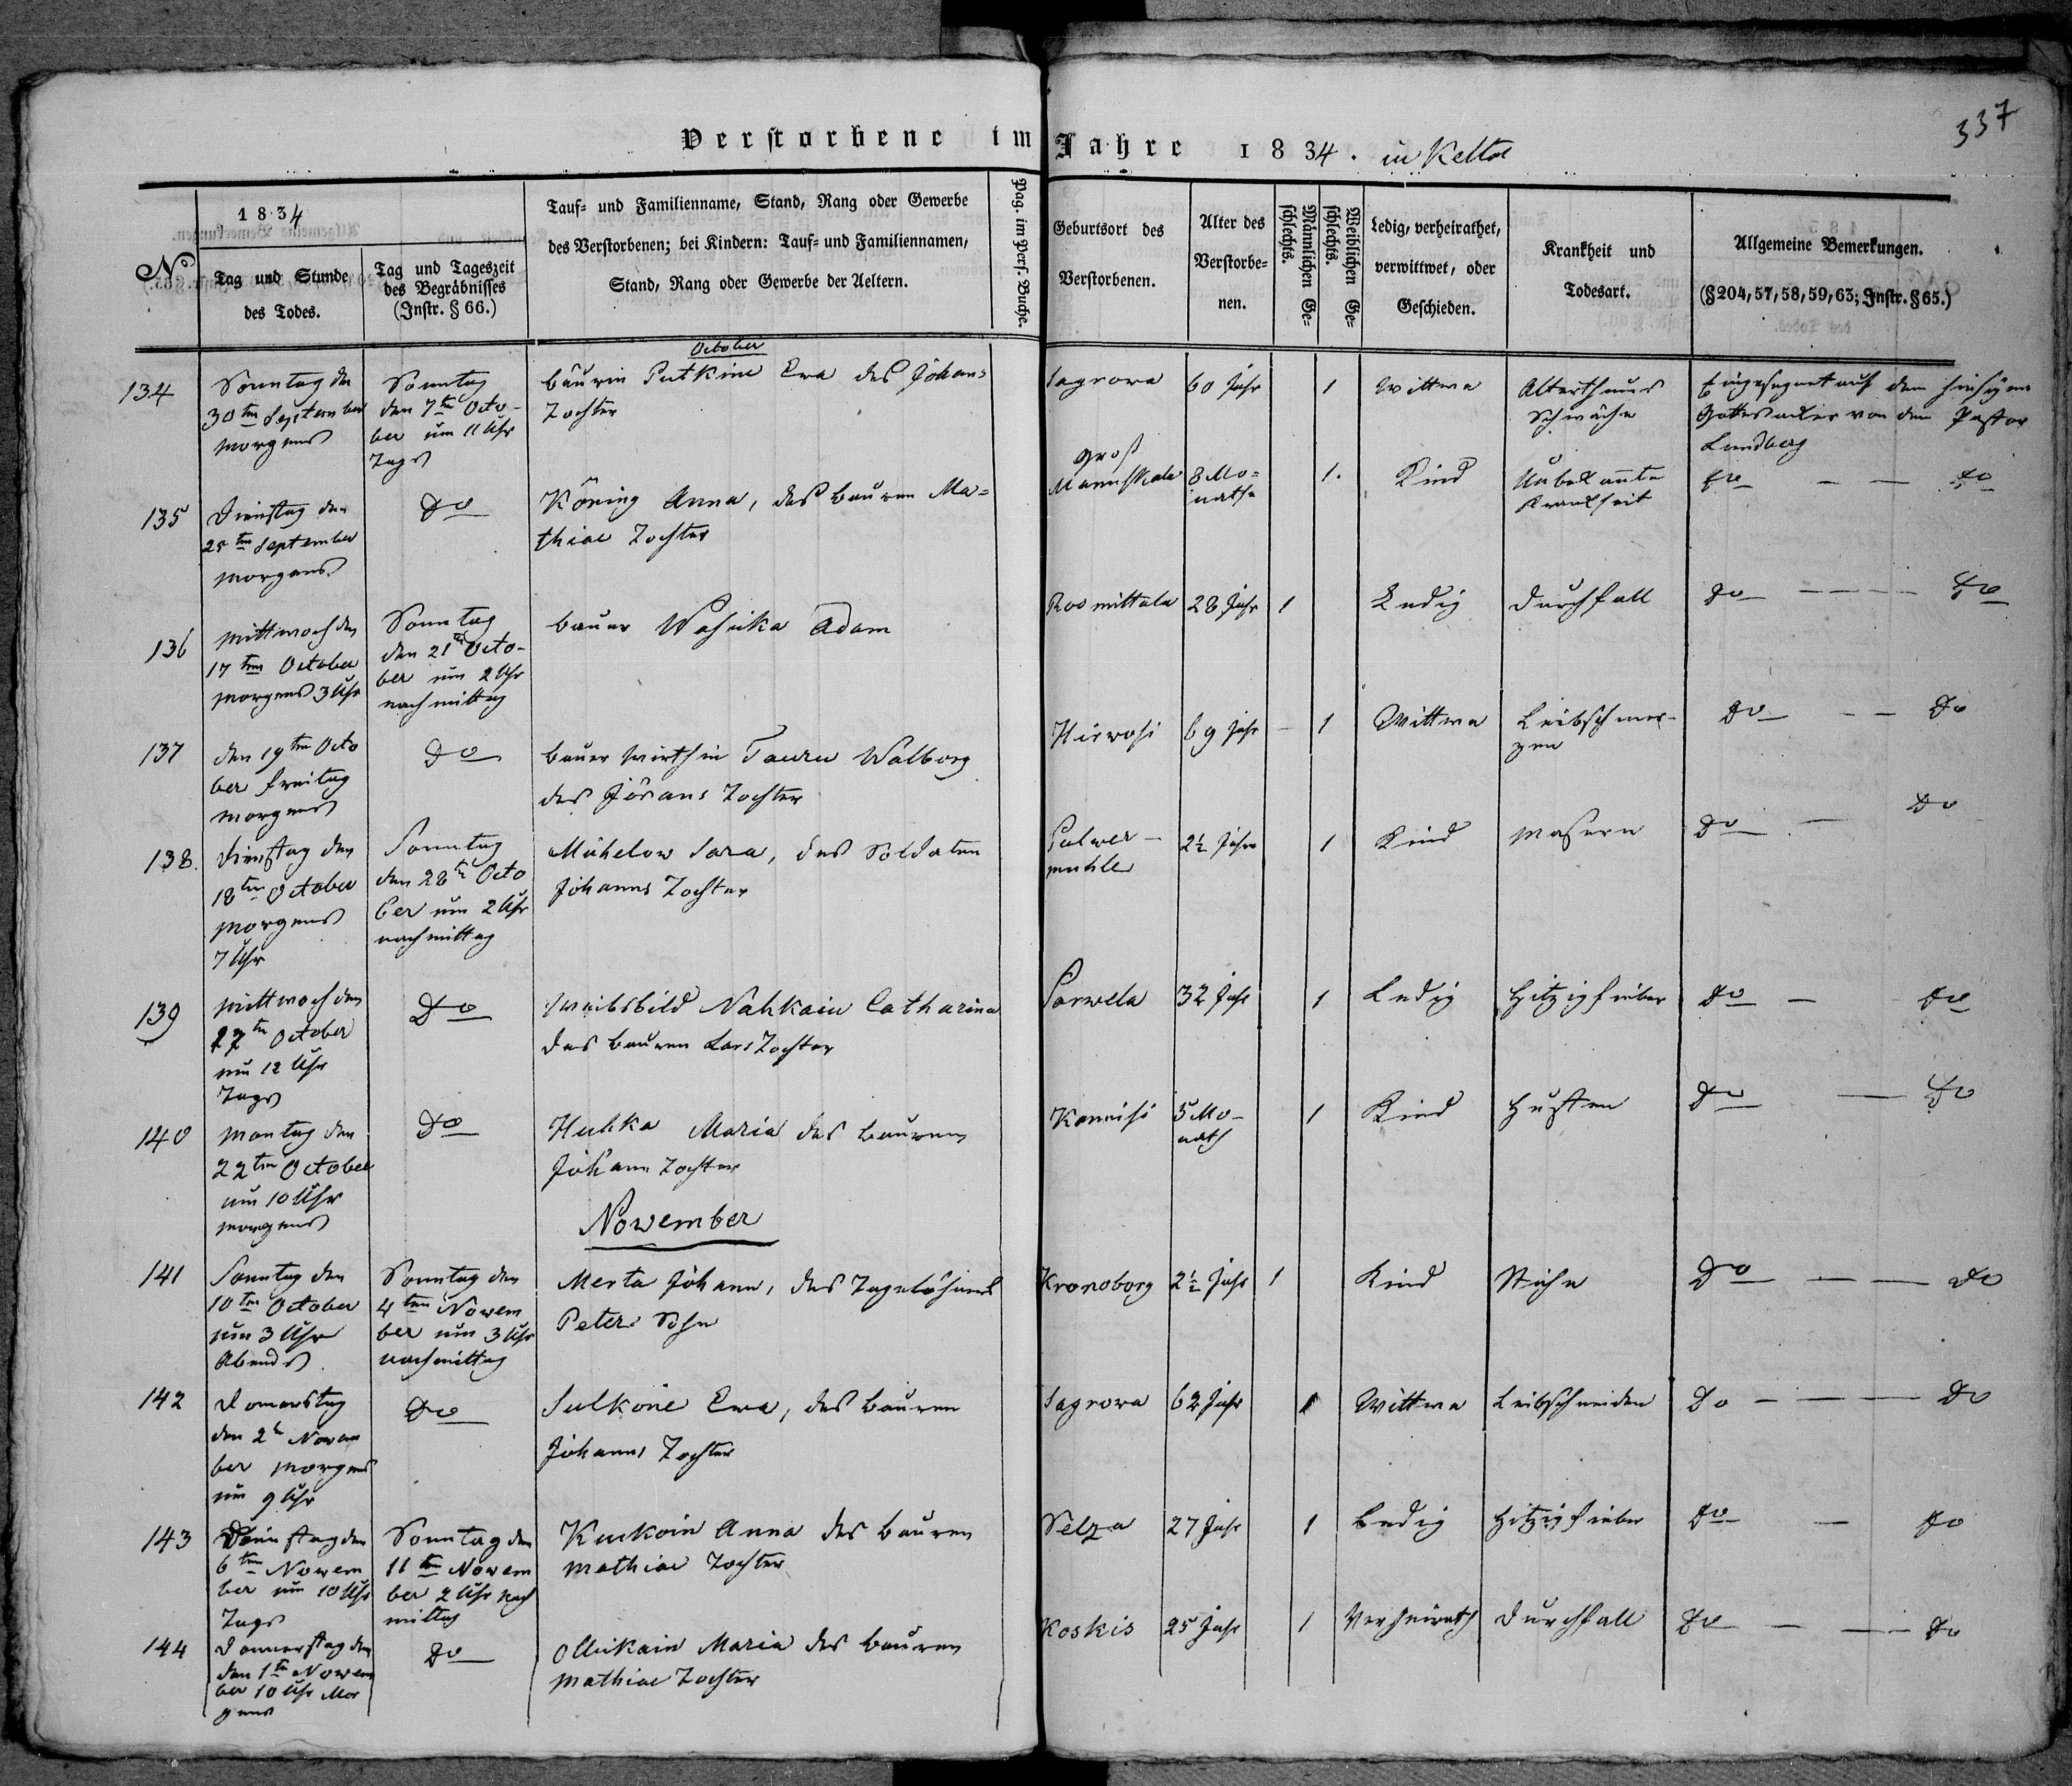 337
Verstorbene im Jahre 1834. in Kelto
No
1834
Tag und Stunde
des Todes.
Tag und Tageszeit
des Begräbnisses
(Instr. § 66.)
Tauf- und Familienname, Stand, Rang oder Gewerbe
des Verstorbenen; bei Kindern: Tauf- und Familiennamen,
Stand, Rang oder Gewerbe der Aeltern.
Pag. im Pers. Buche.
Geburtsort des
Verstorbenen.
Alter des
Verstorbe-
nen.
Männlichen Ge-
schlechts.
Weiblichen Ge-
schlechts.
Ledig, verheirathet,
verwittwet, oder
Geschieden.
Krankheit und
Todesart.
Allgemeine Bemerkungen.
(§ 204, 57, 58, 59, 63; Instr. § 65.)
October
134
Sonntag den
30ten September
morgens
Sonntag
den 7ten Octo-
ber um 11 Uhr
Tags
bäurin Putkine Eva des Johans
Tochter
Sagrova
60 Jahr
1
Wittwe
Alterthums
Schwäche
Eingesegnet auf dem hiesigen
Gottesacker von dem Pastor
Lundberg
135
Dienstag den
25ten September
morgens
Do
Köning Anna, des bauren Ma-
thiae Tochter
Groß
Mannskala
8 Mo-
nathe
1.
Kind
Unbekannte
Krankheit
Do — — Do
136
Mittwoch den
17ten October
morgens 3 Uhr
Sonntag
den 21ten Octo-
ber um 2 Uhr
nachmittag
bauer Wohika Adam
Roomittala
28 Jahr
1
Ledig
Durchfall
Do — — — Do
137
den 19ten Octo
ber freitag
morgens
Do
bauer wirthin Tauru Walborg
des Jörans Tochter
Hirwosi
69 Jahr
1
Wittwe
Leibschmer-
zen
Do — — Do
138.
Dienstag den
18ten October
morgens
7 Uhr
Sonntag
den 28ten Octo
ber um 2 Uhr
nachmittag
Mühelow Sara, des Soldaten
Johanns Tochter
Pulwer-
muhle
2½ Jahr
1
Kind
Masern
Do — Do
139
Mittwoch den
October
um 12 Uhr
Tags
Do
Weibsbild Nahkain Catharina
des bauren Lars Tochter
Porwela
32 Jahr
1
Ledig
Hitzigfieber
Do — Do
140
Montag den
22ten October
um 10 Uhr
morgens
Do
Huhka Maria des bauren
Johann Tochter
Konnisi
5 Mo-
nath
1
Kind
Husten
Do — Do
November
141
Sonntag den
10ten October
um 3 Uhr
Abends
Sonntag den
4ten Novem
ber um 3 Uhr
nachmittag
Merta Johann, des Tagelöhners
Peter Sohn
Kronoborg
2½ Jahr
1
Kind
Stiche
Do — — Do
142
Donerstag
den 2ten Novem
ber morgens
um 9 Uhr
Do
Sulkone Eva, des bauren
Johanns Tochter
Sagrova
62 Jahr
1
Wittwe
Leibschneiden
Do — — Do
143
Dienstag den
6ten Novem
ber um 10 Uhr
Tags
Sonntag den
11ten Novem
ber 2 Uhr nach
mittag
Kuckoin Anna des bauren
Mathiae Tochter
Selza
27 Jahr
1
Ledig
Hitzigfieber
Do — Do
144
Donnerstag den
den 1ten Novem
ber 10 Uhr Mor
gens
Do
Ollukain Maria des bauren
Mathiae Tochter
Koskis
25 Jahr
1
Verheirath
Durchfall
Do — — Do